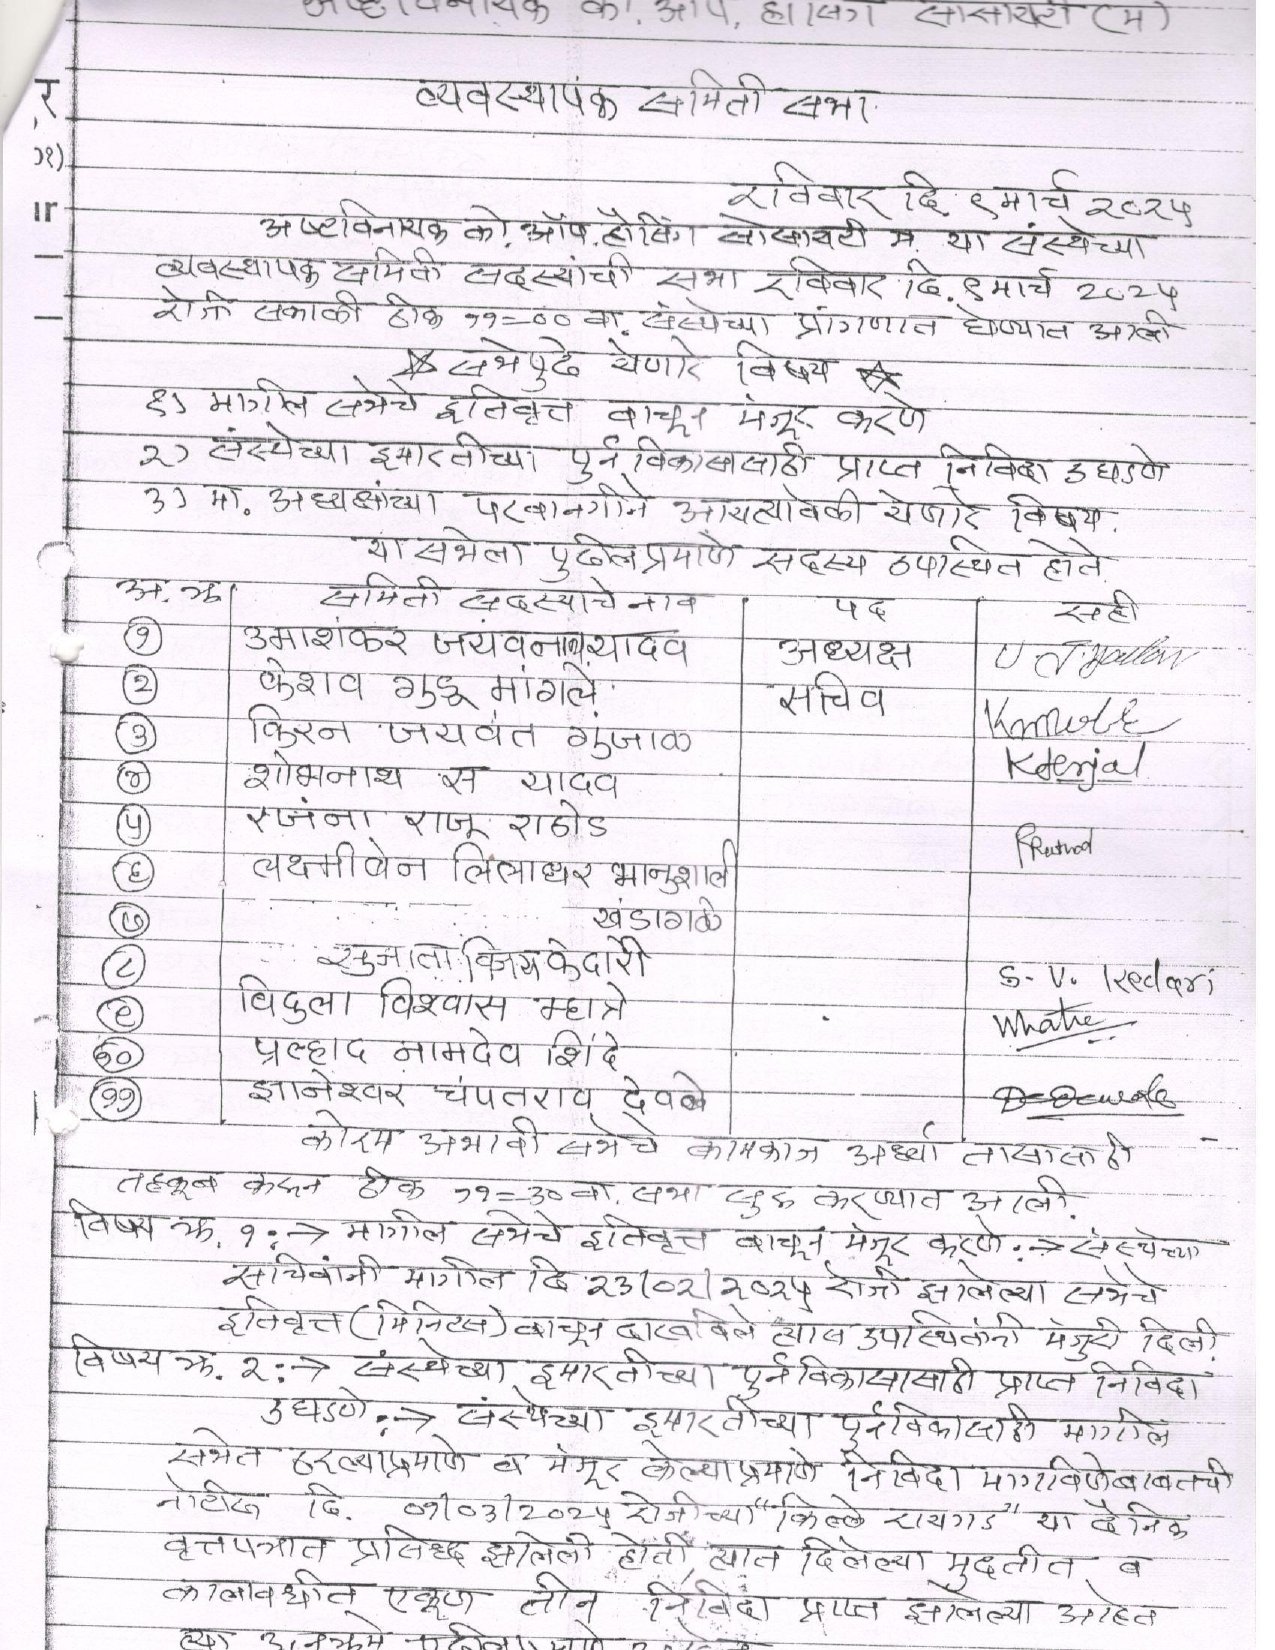 अष्टविनायक को. ऑप. हौसिंग सोसायटी (म)
व्यवस्थापक समिती सभा.
रविवार दि. ९ मार्च २०२५
अष्टविनायक को. ऑप. हौसिंग सोसायटी म. या संस्थेच्या
व्यवस्थापक समिती सदस्यांची सभा रविवार दि. ९ मार्च २०२५
रोजी सकाळी ठीक ११=०० वा. संस्थेच्या प्रांगणात घेण्यात आली
☆ सभेपुढे येणारे विषय ☆
१) मागील सभेचे इतिवृत्त वाचून मंजूर करणे
२) संस्थेच्या इमारतीच्या पुर्नविकासासाठी प्राप्त निविदा उघडणे
३) मा. अध्यक्षांच्या परवानगीने आयत्यावेळी येणारे विषय.
या सभेला पुढीलप्रमाणे सदस्य उपस्थित होते.
अ. क्र समिती सदस्याचे नाव पद सही
१ उमाशंकर जयवनाथ यादव अध्यक्ष U J Yadav
२ केशव गुडू मांगले सचिव
३ किरन जयवंत गुंजाळ
४ शोभनाथ स यादव
५ रंजना राजू राठोड Rathod
६ लक्ष्मीबेन लिलाधर भानुशाली
७ खंडागळे
८ सुजाता विजय केदारी S. V. Kedari
९ विदुला विश्वास म्हात्रे Mhatre
१० प्रल्हाद नामदेव शिंदे
११ ज्ञानेश्वर चंपतराव देवळे
कोरम अभावी सभेचे कामकाज अर्ध्या तासासाठी
तहकूब करून ठीक ११=३० वा. सभा सुरु करण्यात आली.
विषय क्र. १ :→ मागील सभेचे इतिवृत्त वाचून मंजूर करणे :→ संस्थेच्या
सचिवांनी मागील दि २३/०२/२०२५ रोजी झालेल्या सभेचे
इतिवृत्त (मिनिटस) वाचून दाखविले त्यास उपस्थितांनी मंजुरी दिली.
विषय क्र. २ :→ संस्थेच्या इमारतीच्या पुर्नविकासासाठी प्राप्त निविदा
उघडणे :→ संस्थेच्या इमारतीच्या पुर्नविकासाठी मागील
सभेत ठरल्याप्रमाणे व मंजूर केल्याप्रमाणे निविदा मागविणेबाबतची
नोटीस दि. ०१/०३/२०२५ रोजीच्या "किल्ले रायगड" या दैनिक
वृत्तपत्रात प्रसिध्द झालेली होती, त्यात दिलेल्या मुदतीत व
कालावधीत एकूण तीन निविदा प्राप्त झालेल्या आहेत
त्या अनुक्रमे